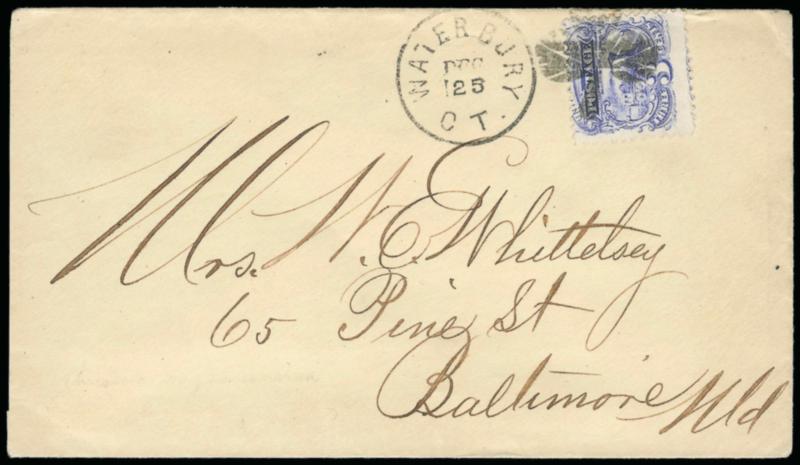 WATERBURY
DEC
25
CT.
Mrs. W. E. Whittelsey
65 Pine St
Baltimore Md